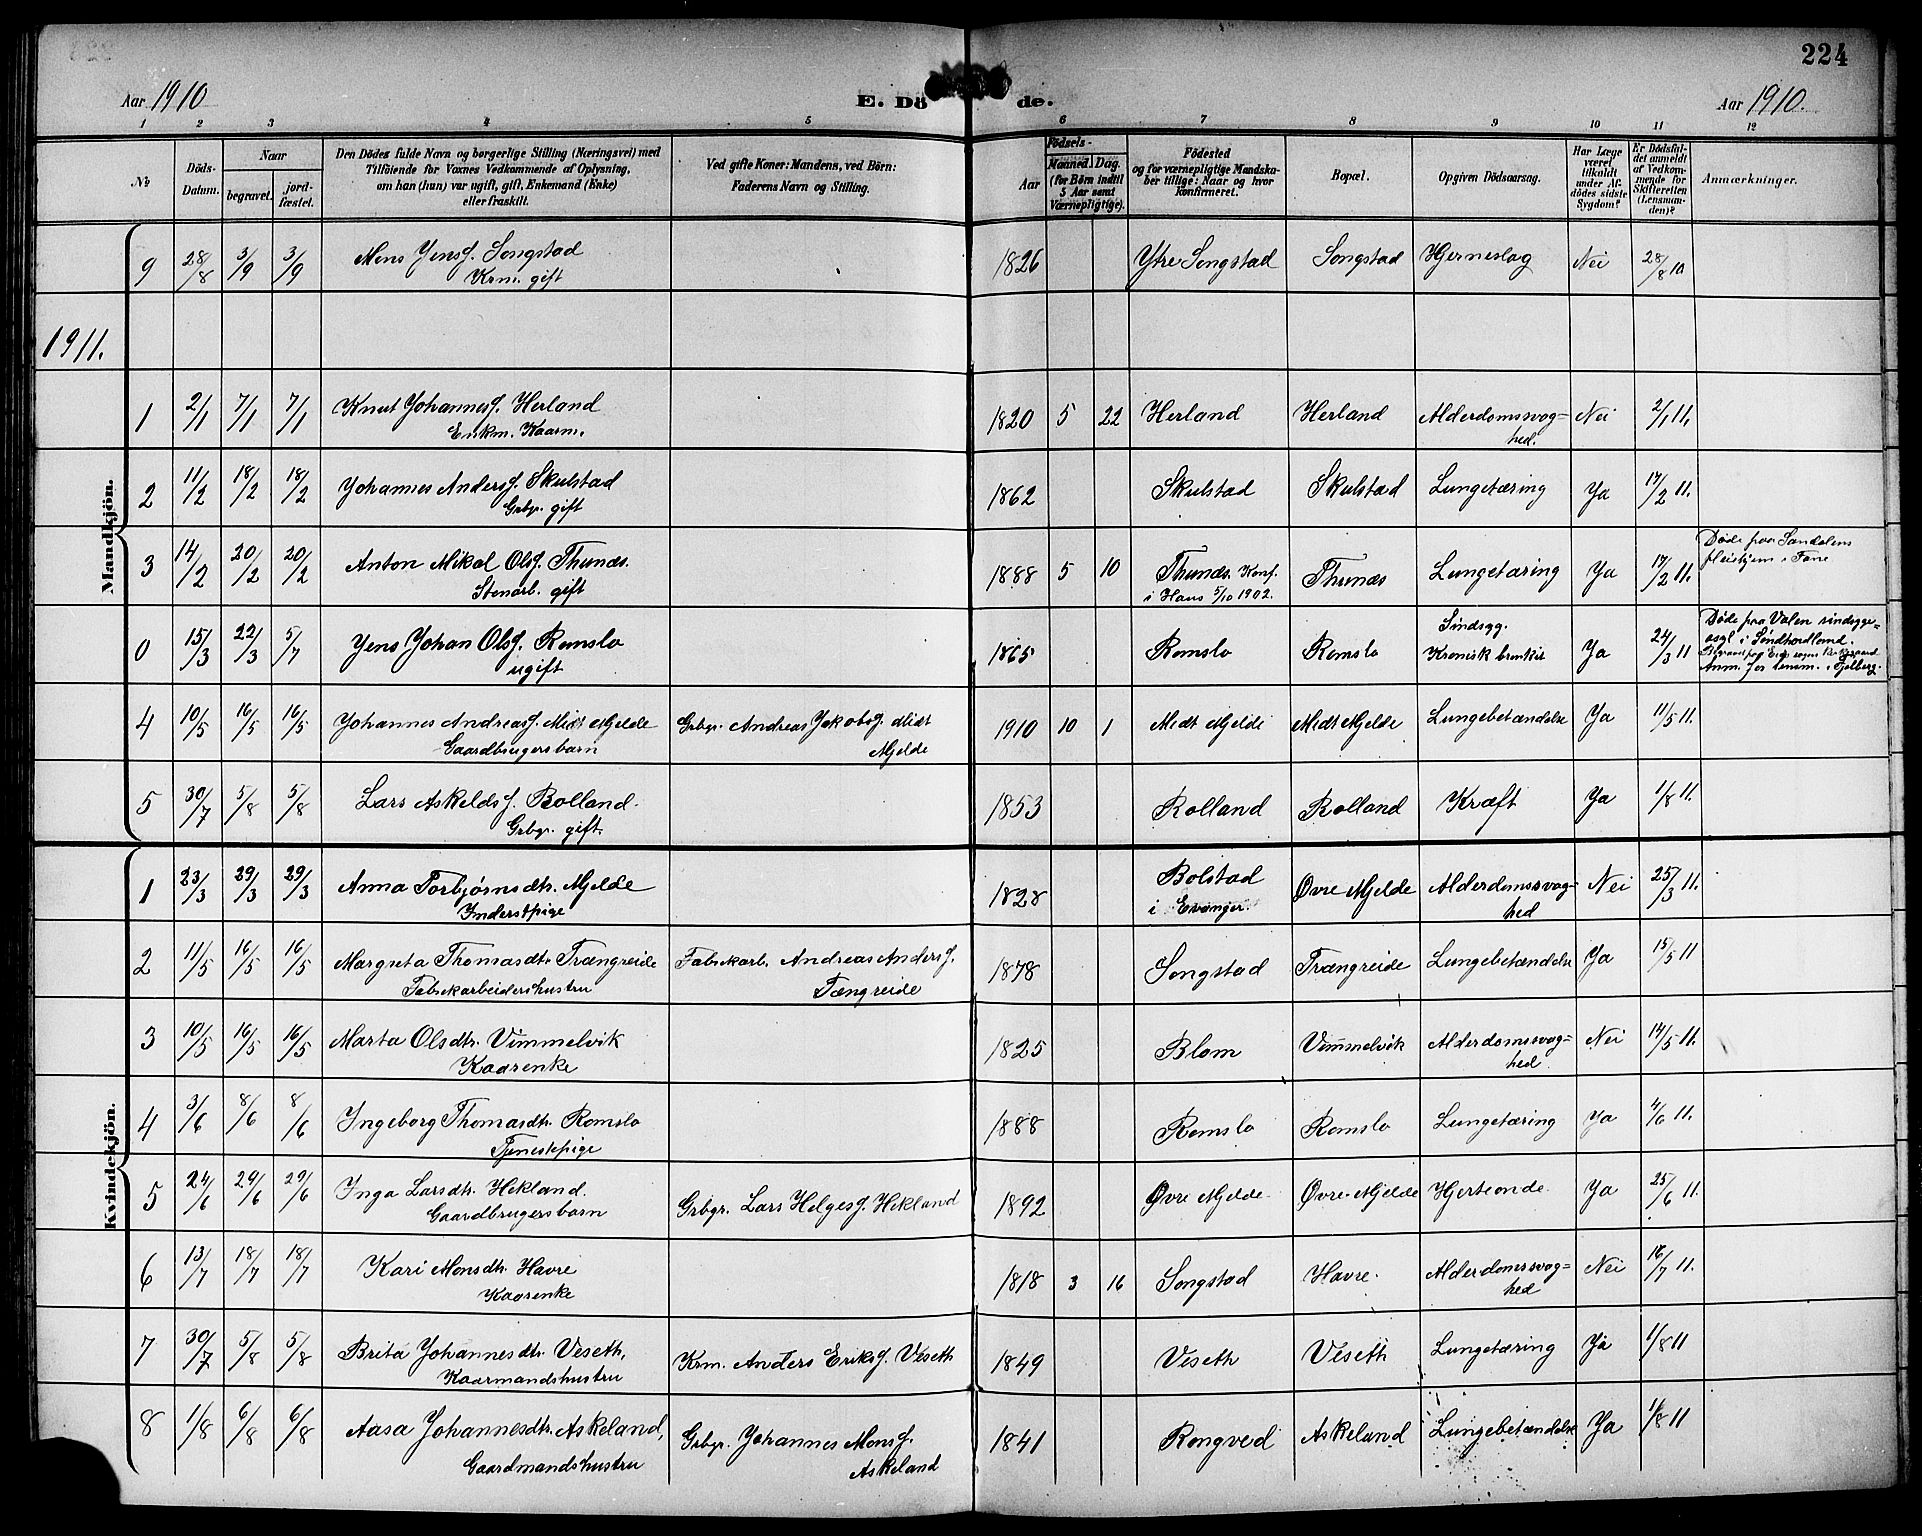 224
Aar 1910 E. Dö de. Aar 1910.
1 2 3 4 5 6 7 8 9 10 11 12
No
Döds-
Datum.
Naar
begravet.
jord-
fæstet.
Den Dödes fulde Navn og borgerlige Stilling (Næringsvei) med
Tilföiende for Voxnes Vedkommende af Oplysning,
om han (hun) var ugift, gift, Enkemand (Enke)
eller fraskilt.
Ved gifte Koner: Mandens, ved Börn:
Faderens Navn og Stilling.
Födsels-
Aar
Maaned. Dag.
(for Börn indtil
5 Aar samt
Værnepligtige).
Födested
og for værnepligtige Mandska-
ber tillige: Naar og hvor
konfirmeret.
Bopæl.
Opgiven Dödsaarsag.
Har Læge
været
tilkaldt
under Af-
dödes sidste
Sygdom?
Er Dödsfal-
det anmeldt
af Vedkom-
mende for
Skifteretten
(Lensman-
den)?
Anmærkninger.
9 28/8 3/9 3/9 Mons Jensf. Songstad 1826 Ytre Songstad Songstad Hjerneslag Nei 28/8 10
Krm. gift
1911.
Mandkjön.
1 2/1 7/1 7/1 Knut Johannesf. Herland 1820 5 22 Herland Herland Alderdomssvag= Nei 2/1 11.
Enkm. Kaarm. hed.
2 11/2 18/2 18/2 Johannes Andersf. Skulstad 1862 Skulstad Skulstad Lungetæring Ja 17/2 11.
Grbgr. gift
3 14/2 20/2 20/2 Anton Mikal Olsf. Thunæs. 1888 5 10 Thunæs. Konf. Thunæs Lungetæring Ja 17/2 11. Døde paa Sandalens
Stenarb. gift i Haus 5/10 1902. pleiehjem i Fane
0 15/3 22/3 5/7 Jens Johan Olsf. Romslo 1865 Romslo Romslo Sindsyg. Ja 24/3 11 Døde paa Valen sindsyge=
ugift Kronisk bronkit asyl i Søndhordland.
4 10/5 16/5 16/5 Johannes Andreasf. Midt Mjelde Grbgr. Andreas Jakobsf Midt 1910 10 1 Midt Mjelde Midt Mjelde Lungebetændelse Ja 11/5 11.
Gaardbrugersbarn Mjelde
5 30/7 5/8 5/8 Lars Askeldsf. Rolland. 1853 Rolland Rolland Kræft Ja 1/8 11.
Grbgr. gift.
Kvindekjön.
1 23/3 29/3 29/3 Anna Torbjørnsdtr. Mjelde 1828 Bolstad Øvre Mjelde Alderdomssvag= Nei 25/3 11.
Inderstpige i Evanger. hed
2 11/5 16/5 16/5 Margreta Thomasdtr. Trængreide Fabrikarb. Andreas Andersf. 1878 Songstad Trængreide Lungebetændelse Ja 15/5 11
Fabrikarbeidershustru Tængreide
3 10/5 16/5 16/5 Marta Olsdtr. Vimmelvik 1825 Blom Vimmelvik Alderdomssvag= Nei 14/5 11.
Kaarenke hed
4 3/6 8/6 8/6 Ingeborg Thomasdtr. Romslo 1888 Romslo Romslo Lungetæring Ja 4/6 11.
Tjenestepige
5 24/6 29/6 29/6 Inga Larsdtr. Hekland. Grbgr. Lars Helgesf. Hekland 1892 Øvre Mjelde Øvre Mjelde Hjerteonde. Ja 25/6 11.
Gaardbrugersbarn
6 13/7 18/7 18/7 Kari Monsdtr. Havre 1818 3 16 Songstad Havre. Alderdomssvag= Nei 16/7 11.
Kaarenke hed
7 30/7 5/8 5/8 Brita Johannesdtr. Veseth, Krm. Anders Eriksf. Veseth 1849 Veseth Veseth Lungetæring Ja 1/8 11
Kaarmandshustru
8 1/8 6/8 6/8 Aasa Johannesdtr. Askeland, Grbgr. Johannes Monsf. 1841 Rongved Askeland Lungebetændelse Ja 1/8 11
Gaardmandshustru Askeland